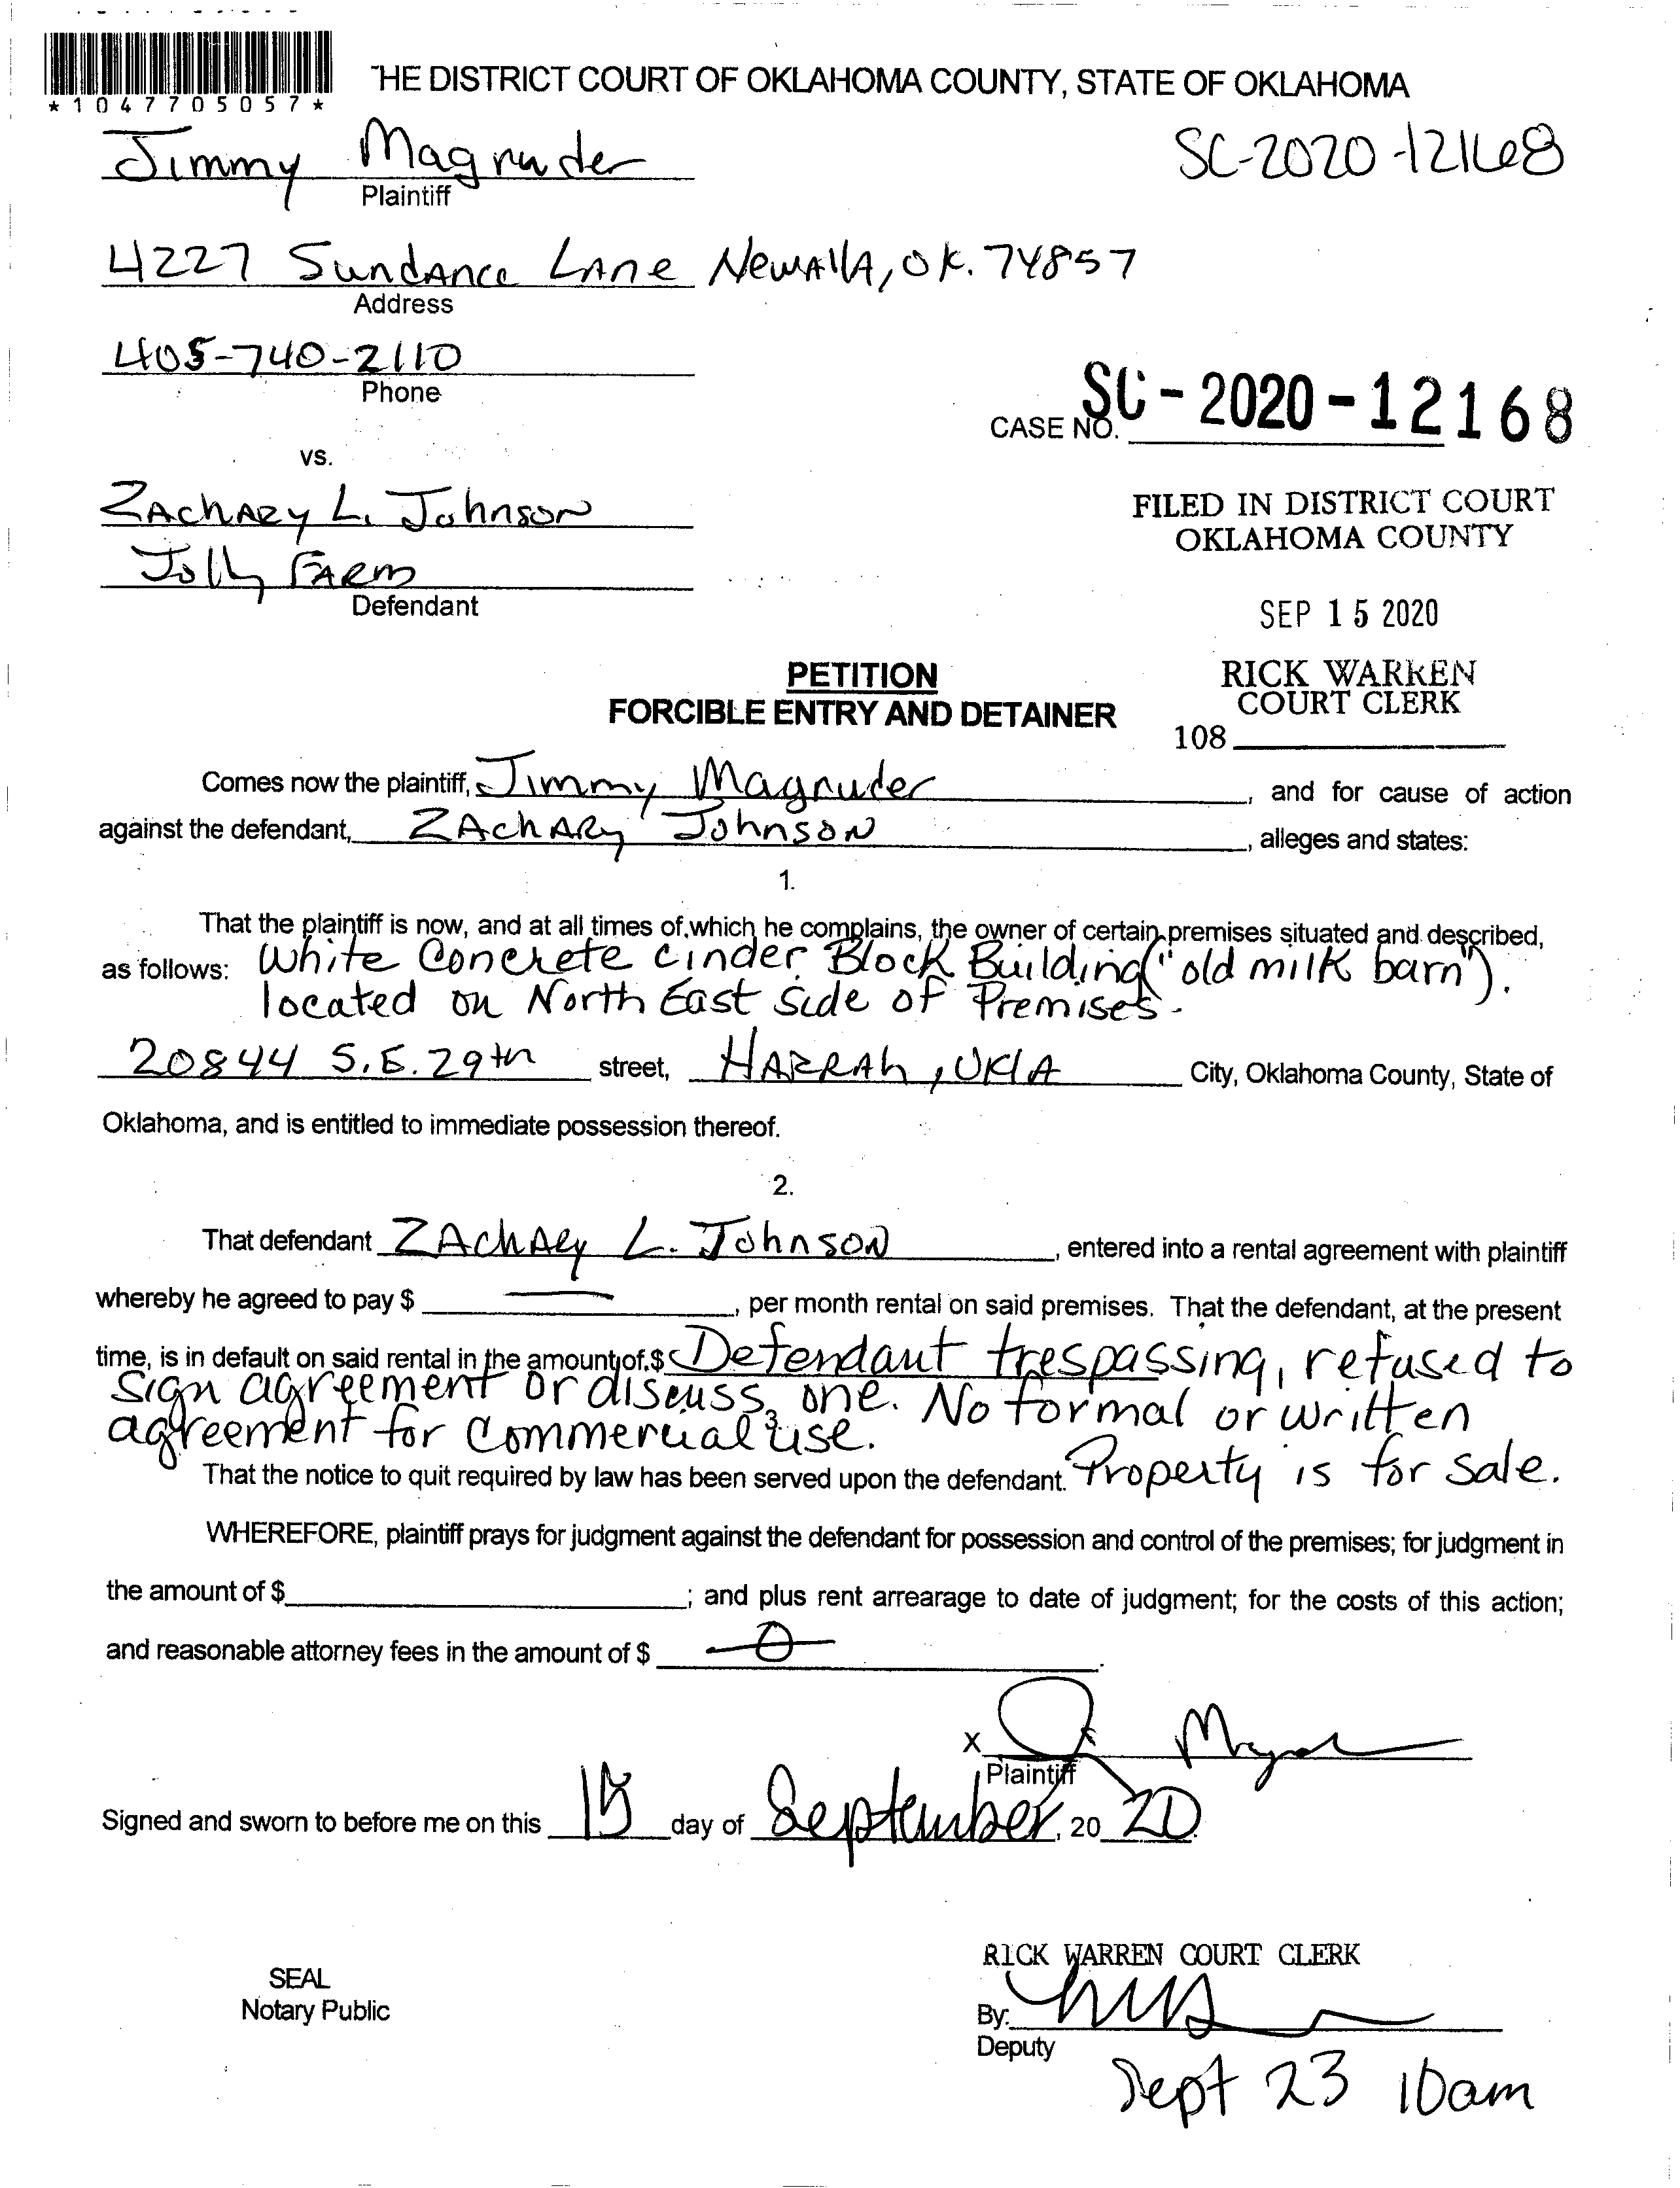 *1047705057*
THE DISTRICT COURT OF OKLAHOMA COUNTY, STATE OF OKLAHOMA
Jimmy Magruder
SC-2020-12168
Plaintiff
4227 Sundance Lane Newalla, OK. 74857
Address
405-740-2110
Phone
CASE NO. SC-2020-12168
vs.
Zachary L. Johnson
FILED IN DISTRICT COURT
OKLAHOMA COUNTY
Jolly Farm
Defendant
SEP 15 2020
PETITION
RICK WARREN
COURT CLERK
FORCIBLE ENTRY AND DETAINER
108
Comes now the plaintiff, Jimmy Magruder, and for cause of action
against the defendant, Zachary Johnson, alleges and states:
1.
That the plaintiff is now, and at all times of which he complains, the owner of certain premises situated and described,
as follows: White Concrete cinder Block Building ("old milk barn").
located on North East side of Premises.
20844 S.E. 29th street, HARRAh, OKlA City, Oklahoma County, State of
Oklahoma, and is entitled to immediate possession thereof.
2.
That defendant Zachary L. Johnson, entered into a rental agreement with plaintiff
whereby he agreed to pay $ —, per month rental on said premises. That the defendant, at the present
time, is in default on said rental in the amount of $ Defendant trespassing, refused to
sign agreement or discuss one. No formal or written
3.
agreement for Commercial use.
That the notice to quit required by law has been served upon the defendant. Property is for sale.
WHEREFORE, plaintiff prays for judgment against the defendant for possession and control of the premises; for judgment in
the amount of $; and plus rent arrearage to date of judgment; for the costs of this action;
and reasonable attorney fees in the amount of $ 0.
X J Magruder
Plaintiff
Signed and sworn to before me on this 15 day of September, 2020.
RICK WARREN COURT CLERK
SEAL
Notary Public
By:
Deputy
Sept 23 10am